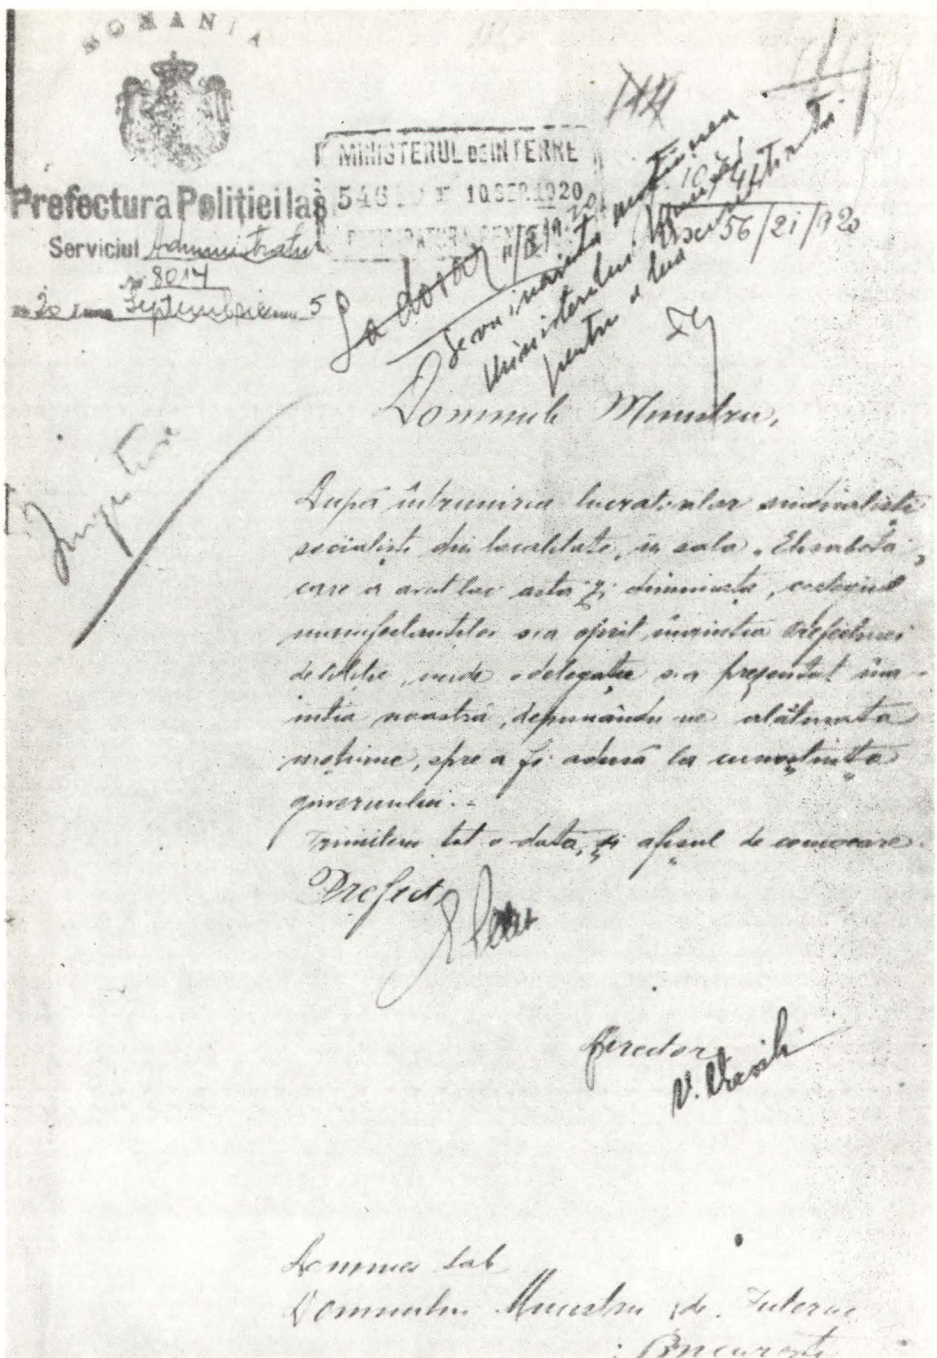 ROMANIA
MINISTERUL DE INTERNE
546 10 SEP. 1920
Prefectura Poliției Iași
Serviciul Administrativ
No 8014
20 Luna Septembrie 5
La dosar
Se va înainta moțiunea
Ministerului
pentru a lua
56/21/920
Domnule Ministru,
După întrunirea lucratorilor sindicaliști
socialiști din localitate, în sala „Elisabeta”,
care a avut loc astăzi dimineața, cortegiul
manifestanților s'a oprit înaintea Prefecturei
de Poliție, unde o delegație s'a prezentat îna-
intea noastră, depunându-ne alăturata
moțiune, spre a fi adusă la cunoștința
guvernului.-
Trimitem tot o dată și afișul de convocare.
Prefect,
Director,
V.
Domniei Sale
Domnului Ministru de Interne
București